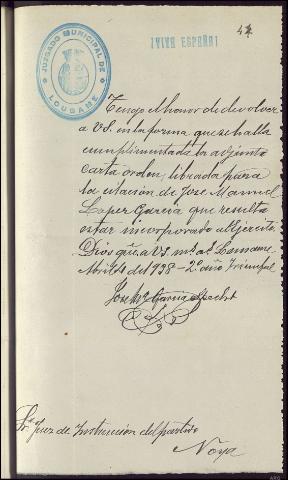 ¡VIVA ESPAÑA!
47
JUZGADO MUNICIPAL DE
LOUSAME
Tengo el honor de devolver
a VS. en la forma que se halla
cumplimentada la adjunta
carta orden, librada para
la citación de Jose Manuel
Lopez Garcia que resulta
estar incorporado a Ejercito.
Dios gũe a VS. mˢ aˢ Lousame
Abril 4 del 938 - 2º año Triunfal
Garcia
Sr. Juez de Instrucción del partido
Noya